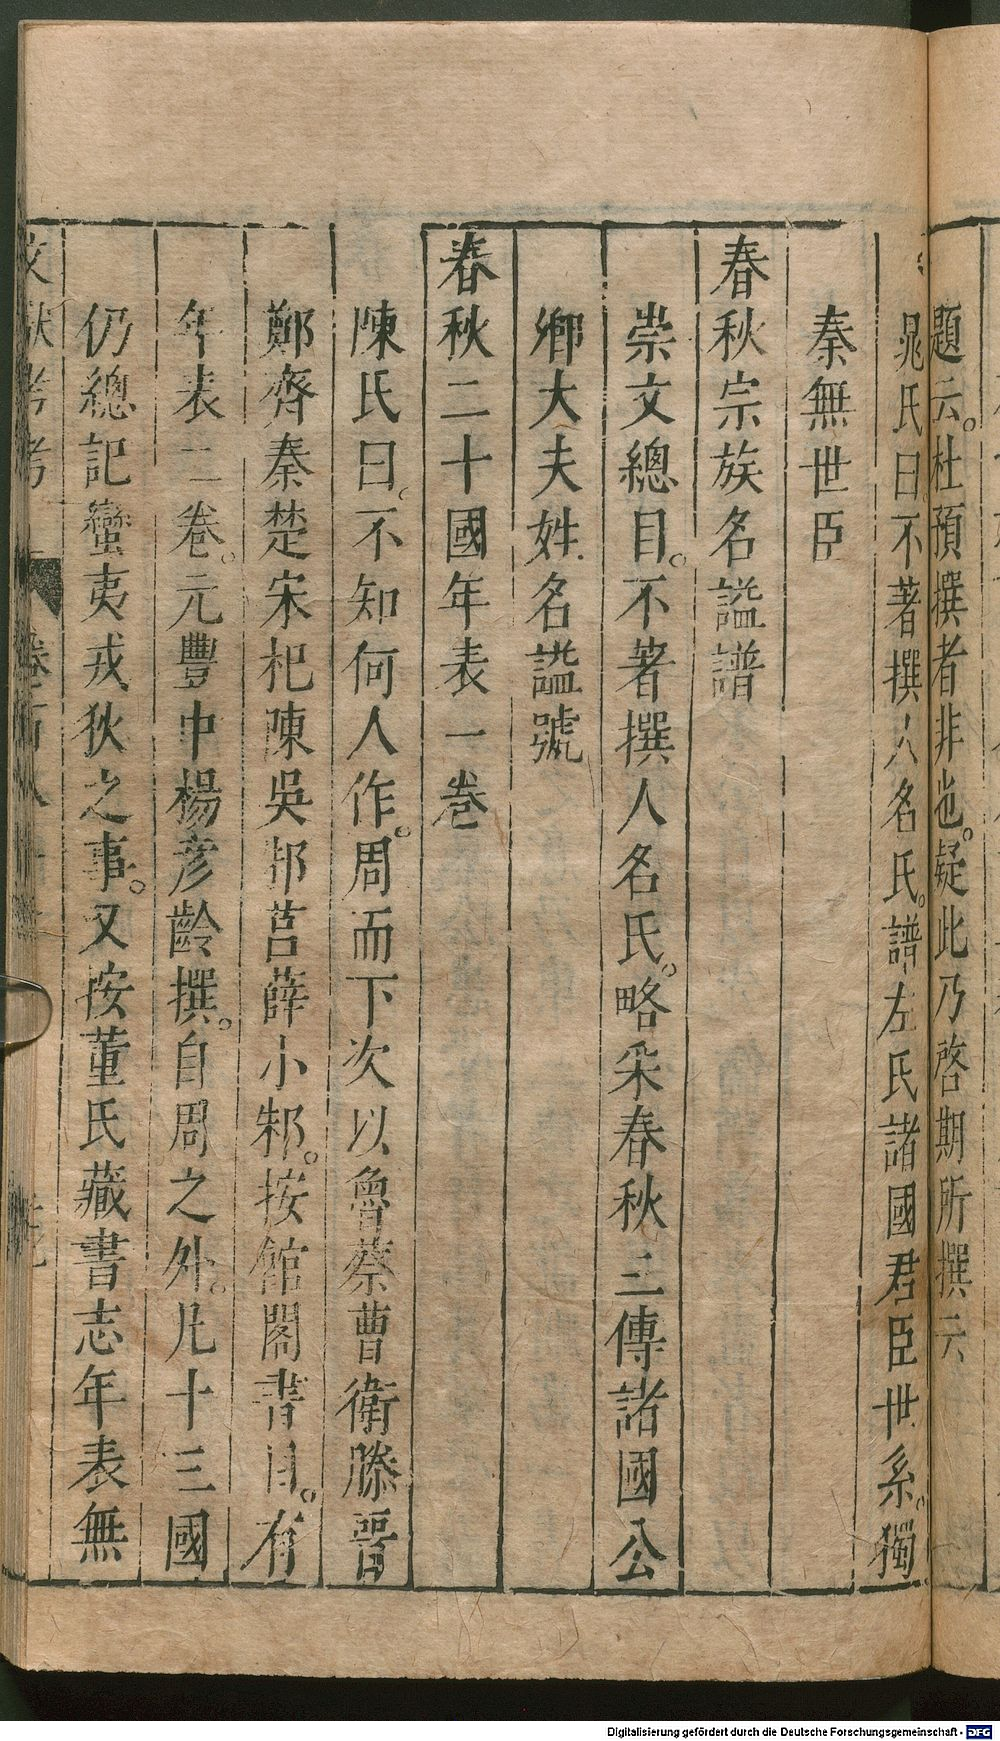 題云。杜預撰者非也。疑此乃啓期所撰云
晁氏曰。不著撰人名氏。譜左氏諸國君臣世系。獨
秦無世臣
春秋宗族名諡譜
崇文總目。不著撰人名氏。略采春秋三傳諸國公
卿大夫姓名諡號
春秋二十國年表一卷
陳氏曰。不知何人作。周而下次以魯蔡曹衛滕晉
鄭齊秦楚宋杞陳吳邾莒薛小邾。按館閣書目。有
年表二卷。元豐中楊彥齡撰。自周之外。凡十三國
仍總記蠻夷戎狄之事。又按董氏藏書志年表無
文獻考
Digitalisierung gefördert durch die Deutsche Forschungsgemeinschaft - DFG